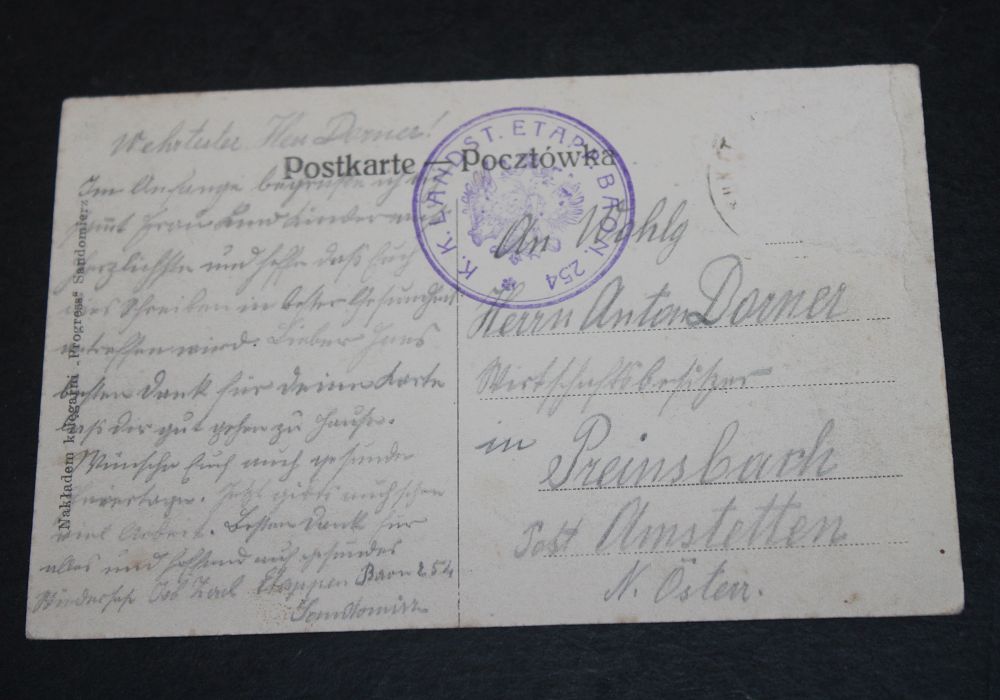 Wehrtester Herr Dorner!
Postkarte — Pocztówka
K. K. LANDST. ETAPP. BAON 254
Im Anfange begrüße ich
samt Frau und Kinder
herzlichste und hoffe daß Euch
dies Schreiben in bester Gesundheit
antreffen wird. Lieber
besten Dank für deine Karte
daß dir gut gehen zu Hause.
Wünsche Euch auch gesunde
Feiertage. Jetzt gibts auch schon
viel Arbeit. Besten Dank für
alles und hoffend auf gesundes
Wiedersehn Etappen Baon 254
Sandomierz
Nakładem księgarni „Progress“ Sandomierz
An Wohlg
Herrn Anton Dorner
Wirtschaftsbesitzer
in Preinsbach
Post Amstetten
N. Österr.